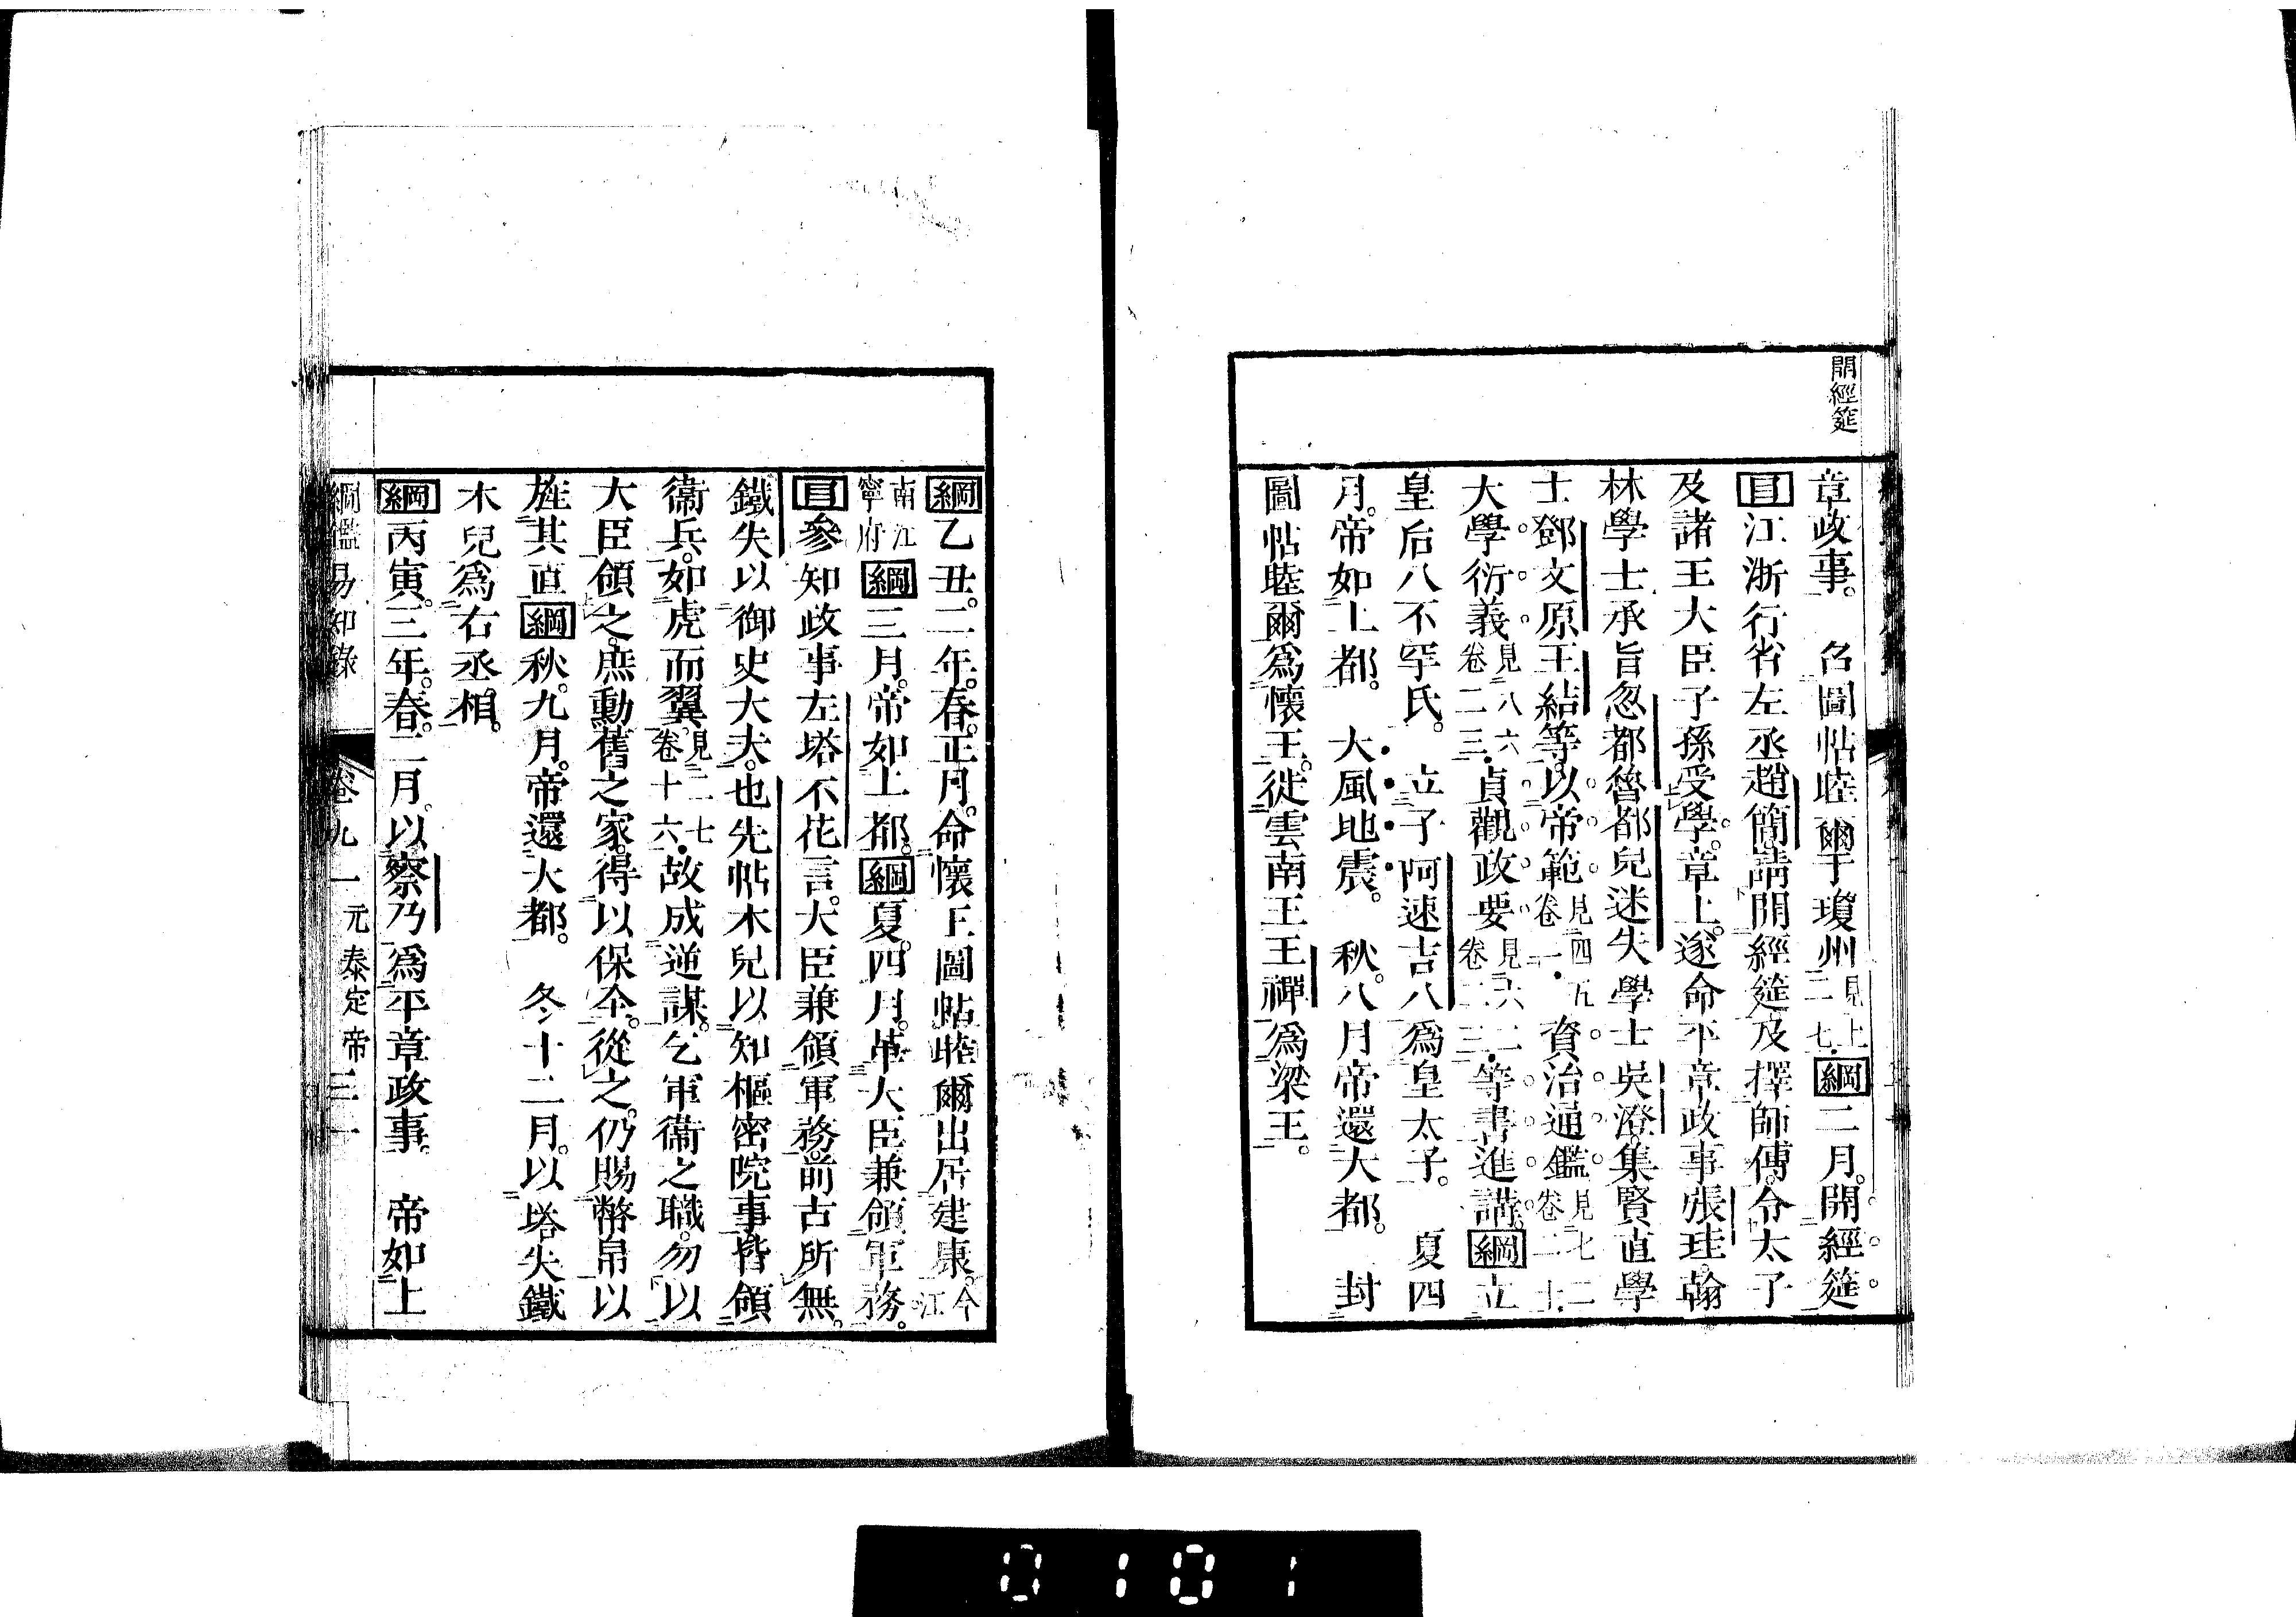 開經筵
章政事。　召圖帖睦爾于瓊州見上二七。綱二月。開經筵
目江浙行省左丞趙簡。請開經筵及擇師傅。令太子
及諸王大臣子孫受學。章上。遂命平章政事張珪。翰
林學士承旨忽都魯都兒迷失學士吳澄。集賢直學
士鄧文原王結等。以帝範見四五卷一。資治通鑑見七二卷二十。
大學衍義見八六卷二三。貞觀政要見六二卷二三。等書進講。綱立
皇后八不罕氏。　立子阿速吉八爲皇太子。　夏四
月。帝如上都。　大風地震。　秋。八月帝還大都。　封
圖帖睦爾爲懷王。徙雲南王王禪爲梁王。
綱乙丑。二年。春。正月。命懷王圖帖睦爾出居建康。今江
南江寧府綱三月。帝如上都。綱夏。四月。革大臣兼領軍務。
目參知政事左塔不花言。大臣兼領軍務。前古所無。
鐵失以御史大夫。也先帖木兒以知樞密院事皆領
衞兵。如虎而翼見二七卷十六。故成逆謀。乞軍衞之職。勿以
大臣領之。庶勳舊之家。得以保全。從之。仍賜幣帛以
旌其直綱秋。九月。帝還大都。　冬十二月。以塔失鐵
木兒爲右丞相。
綱丙寅。三年。春。二月。以察乃爲平章政事。　帝如上
綱鑑易知錄　卷九一　元泰定帝　三一
0101